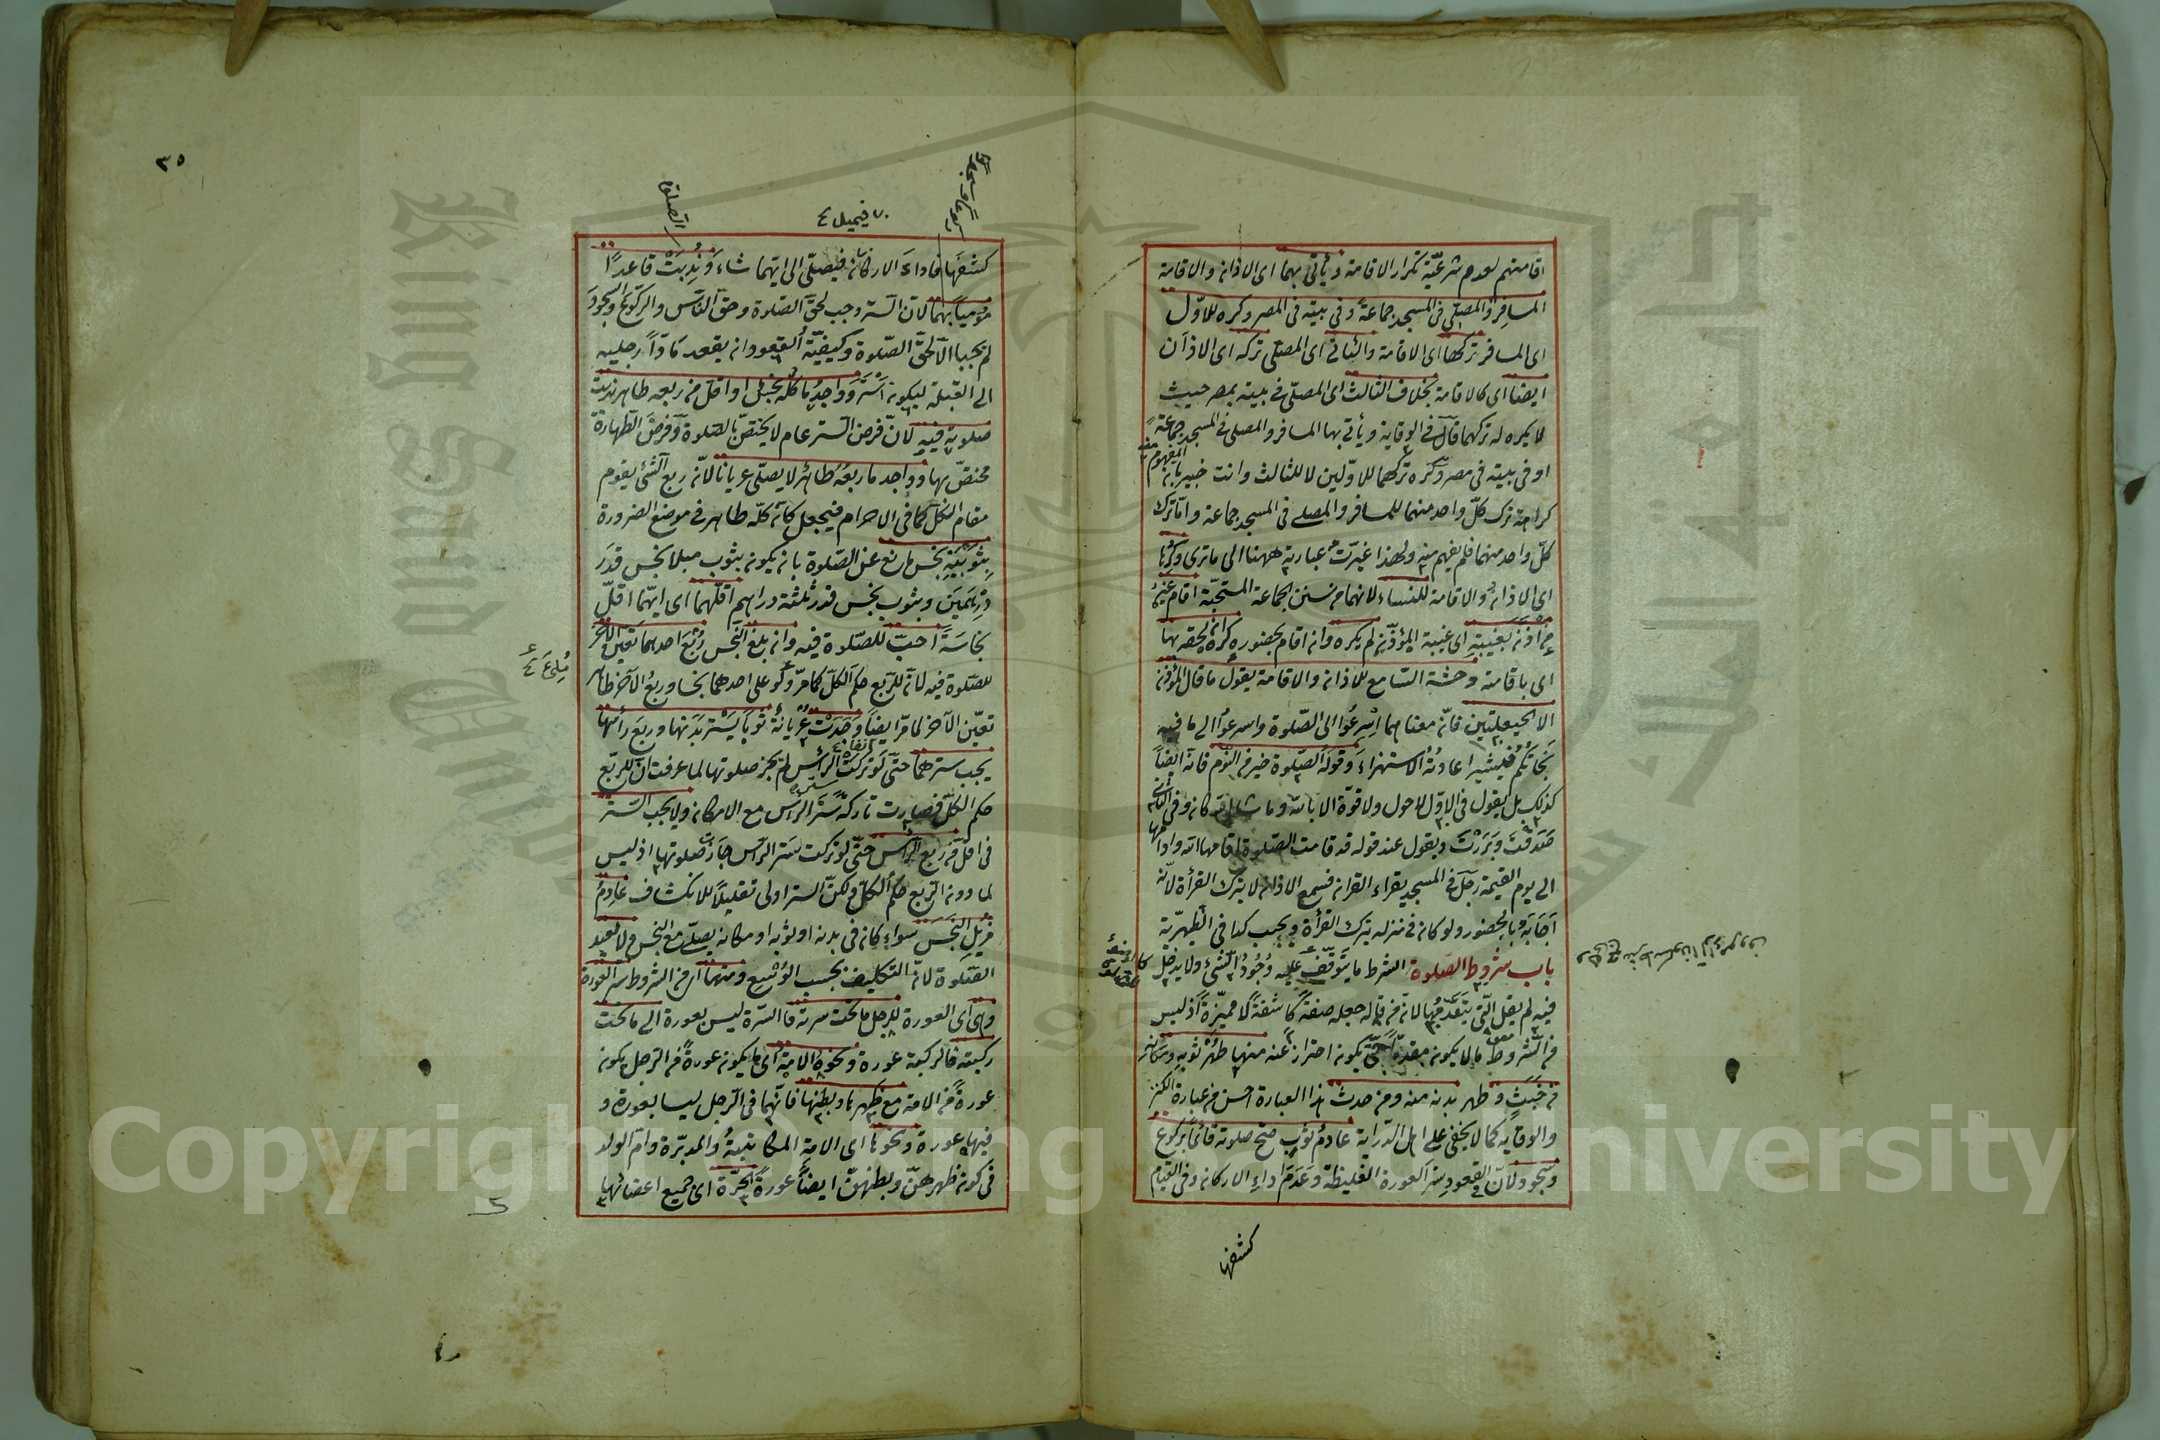 اقامتهم لعدم شرعيّة تكرار الاقامة ويأتى بهما اى الاذان والاقامة
المسافر والمصلى فى المسجد جماعة وفى بيته فى المصر وكره للاوّل
اى المسافر تركها اى الاقامة وللثانى اى المصلّى تركه اى الاذان
ايضا اى كالاقامة بخلاف الثالث اى المصلّى فى بيته بمصر حيث
لا يكره له تركهما قال فى الوقاية ويأتى بها المسافر والمصلى فى المسجد جماعة
او فى بيته فى مصر وكره تركهما للاوّلين لا للثالث وانت خبير بان المفهوم منه
كراهة ترك كلّ واحد منهما للمسافر والمصلى فى المسجد جماعة وامّا ترك
كلّ واحد منهما فلم يفهم منه ولهذا غيّرت عبارته ههنا الى ما ترى وكرها
اى الاذان والاقامة للنساء لانهما من سنن الجماعة المستحبّة اقام غير
من اذّن بغيبته اى غيبة المؤذّن لم يكره وان اقام بحضوره كره ان لحقه بها
اى باقامته وحشة السّامع للاذان والاقامة يقول ما قال المؤذن
الا الحيعلتين فانّه معناهما اسرعوا الى الصّلوة واسرعوا الى ما فيه
نجاتكم فيشبه اعادته الاستهزاء وقوله الصّلوة خير من النوم فانه ايضاً
كذلك بل يقول فى الاوّل لا حول ولا قوّة الا بالله وما شاء الله كان وفى الثانى
صدقت وبررت ويقول عند قوله قد قامت الصلوة اقامها الله وادامها
الى يوم القيمة رجل فى المسجد يقراء القران فسمع الاذان لا يترك القرأة لانّه
اجابة بالحضور ولو كان فى منزله يترك القرأة ويجيب كذا فى الظهيريّة
باب شروط الصّلوة الشرط ما يتوقّف عليه وجود الشئ ولا يدخل
فيه لم يقل التّى يتقدّمها لانّه من قاله جعله صفة كاشفة لا مميّزة اذ ليس
من الشّروط ما لا يكون مقدّما حتّى يكون احترازا عنه منها طهر ثوبه ومكانه
من خبث وطهر بدنه منه ومن حدث هذا العبارة احسن من عبارة الكنز
والوقاية كما لا يخفى على اهل الدّراية عادم ثوب صحّ صلوته قائماً بركوع
وسجود لانّ فى القعود ستر العورة الغليظة وعدم اداء الاركان وفى القيام
كشفها
٣٥
كشفها واداء الاركان فيصلّى الى ايّهما شاء وندبت قاعدًا
مومياً بهما لانّ السّتر وجب لحقّ الصّلوة وحقّ النّاس والرّكوع والسّجود
لم يجبا الّا لحقّ الصّلوة وكيفيّة القعود ان يقعد مادّاً رجليه
الى القبلة ليكون استر وواجد ما كلّه نجس او اقلّ من ربعه طاهر ندبت
صلوته فيه لانّ فرض السّتر عام لا يختصّ بالصّلوة وفرض الطّهارة
مختصّ بها وواجد ما ربعه طاهر لا يصلّى عريانا لانّه ربع الشئ يقوم
مقام الكلّ كما فى الاحرام فيجعل كانّه كلّه طاهر فى موضع الضرورة
بثوبيه نجس مانع عن الصّلوة بان يكون بثوب مبلا نجس قدر
درهمين وبثوب نجس قدر ثلثة دراهم اقلّهما اى ايّهما اقلّ
نجاسة احبّ للصّلوة فيه وان بلغ النّجس ربع احدهما تعيّن الآخر
للصّلوة فيه لانّه للرّبع حكم الكلّ كما مرّ وكو على احدهما نجسا وربع الآخر طاهر
تعيّن الآخر لما مرّ ايضاً وجدت عريانة ثوبا يستر بدنها وربع رأسها
يجب سترهما حتّى لو تركت الرأس لم يجز صلوتها لما عرفت انّ للرّبع
حكم الكلّ فصارت تاركة ستر الرأس مع الامكان ولا يجب السّتر
فى اقلّ من ربع الرأس حتّى لو تركت ستر الرأس جازت صلوتها اذ ليس
لما دون الرّبع حكم الكلّ ولكنّ الستر اولى تقليلاً للانكشاف عادم
مزيل النّجس سواء كان فى بدنه او ثوبه او مكانه يصلّى مع النّجس ولا يعيد
الصّلوة لانّه التكليف بحسب الوُسْع ومنها اى من الشروط ستر العورة
وهى اى العورة للرّجل ما تحت سرته فالسّرة ليس بعورة الى ما تحت
ركبته فالركبة عورة ونحوه الامة اى ما يكون عورة من الرّجل يكون
عورة من الامة مع ظهرها وبطنها فانّهما فى الرّجل ليسا بعورة و
فيها عورة ونحوها اى الامة المكاتبة والمدبّرة وامّ الولد
فى كون ظهرهنّ وبطنهنّ ايضاً عورة الحرّة اى جميع اعضائها
Copyright © King Saud University